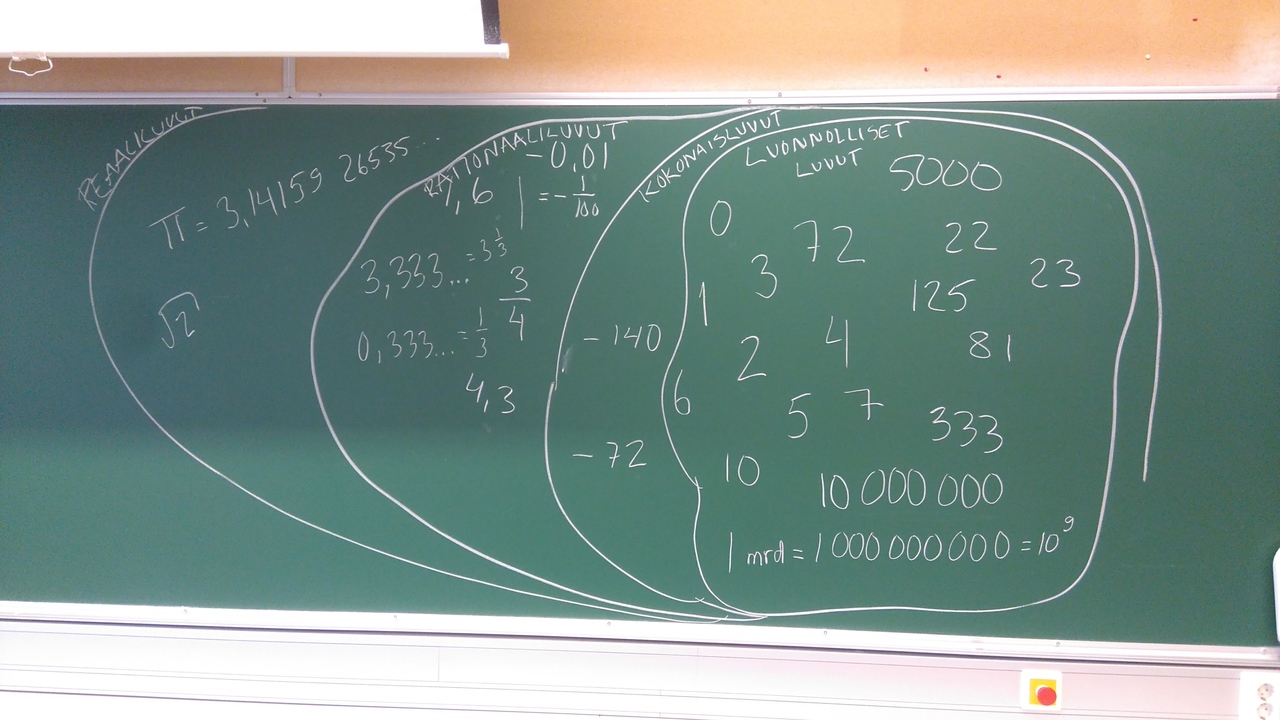 REAALILUVUT
π = 3,14159 26535...
√2
RATIONAALILUVUT
-0,01
1,6 | = -1/100
3,333... = 3 1/3
3/4
0,333... = 1/3
4,3
KOKONAISLUVUT
-140
-72
LUONNOLLISET
LUVUT
5000
0 72 22
3 23
1 125
2 4 81
6 5 7 333
10 10 000 000
1 mrd = 1 000 000 000 = 10⁹